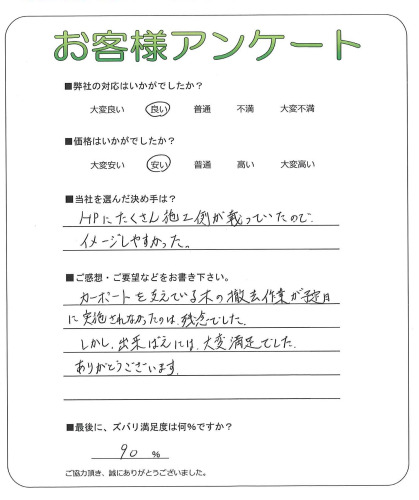 お客様アンケート
■弊社の対応はいかがでしたか？
大変良い 良い 普通 不満 大変不満
■価格はいかがでしたか？
大変安い 安い 普通 高い 大変高い
■当社を選んだ決め手は？
HPにたくさん施工例が載っていたので、
イメージしやすかった。
■ご感想・ご要望などをお書き下さい。
カーポートを支えている木の撤去作業が予定日
に実施されなかったのは、残念でした。
しかし、出来ばえには、大変満足でした。
ありがとうございます。
■最後に、ズバリ満足度は何％ですか？
90 ％
ご協力頂き、誠にありがとうございました。